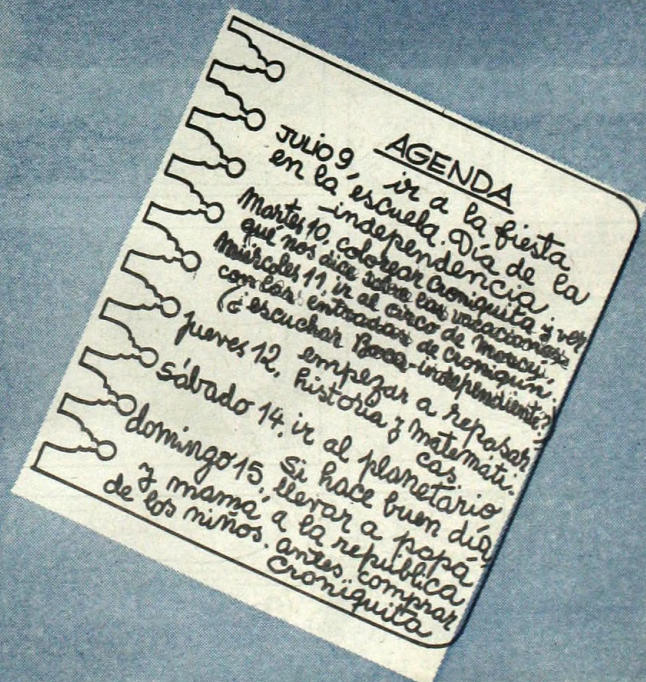 AGENDA
JULIO 9, ir a la fiesta
en la escuela. Día de la
-independencia,
Martes 10, colorear Croniquita y ver
que nos dice sobre las vacaciones
Miércoles 11, ir al circo de Moscú,
con las entradas de Croniquín.
(ó escuchar Boca-independiente?)
jueves 12, empezar a repasar
historia y matemáti-
cas.
sábado 14, ir al planetario
si hace buen día,
domingo 15, llevar a papá
y mamá a la república
de los niños. antes comprar
Croniquita